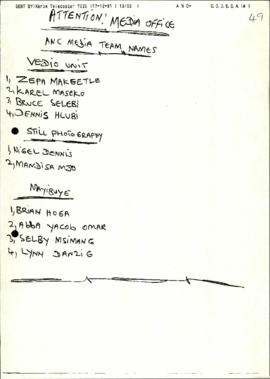 SENT BY:Xerox Telecopier 7021
A N C→
49
ATTENTION! MEDIA OFFICE
ANC MEDIA TEAM NAMES
VEDIO UNIT
1, ZEPA MAKEETLE
2, KAREL MASEKO
3, BRUCE SELEBI
4, DENNIS HLUBI
STILL PHOTOGRAPHY
1, NIGEL DENNIS
2, MANDISA MJO
MAYIBUYE
1, BRIAN HOGA
2, ABBA YACOB OMAR
3, SELBY MSIMANG
4, LYNN DANZIG